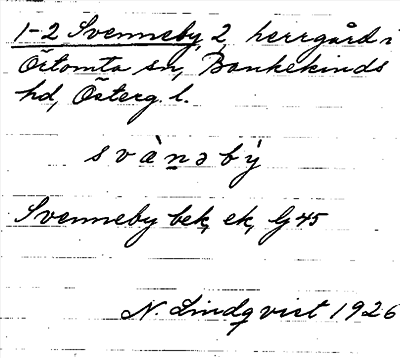 1-2 Svenneby, 2, herrgård i
Örtomta sn, Bankekinds
hd, Österg. l.
svȧ̀nəbý
Svenneby bek, ek, G 45
N. Lindqvist 1926